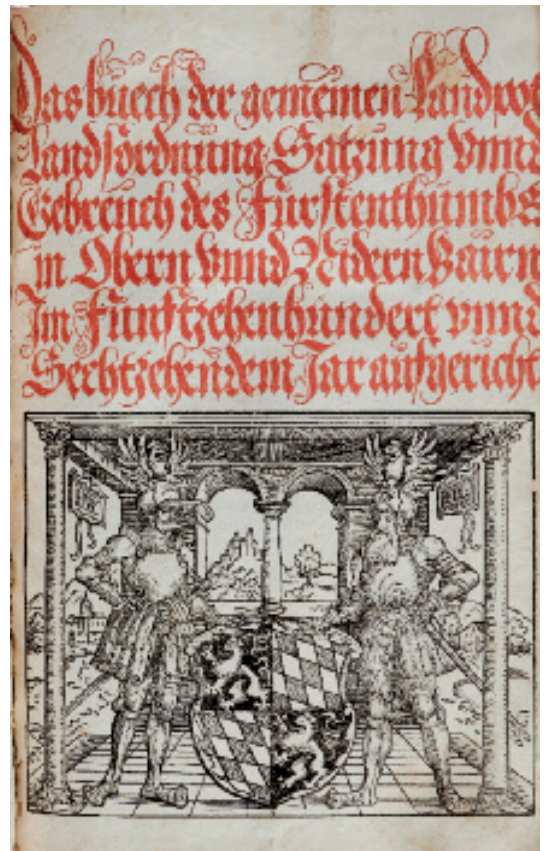 Das buech der gemeinen Landpot
Landsordnung Satzung vnnd
Gebreuch des Furstenthumbs
in Obern vnnd Nidern Bairn
Im Funftzehenhundert vnnd
Sechtzehendem Jar aufgericht